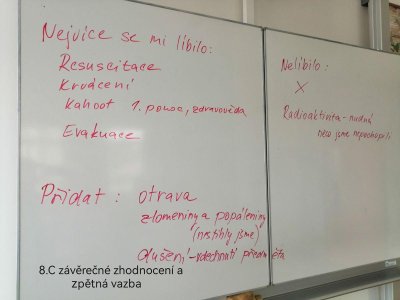 Nejvíce se mi líbilo:
Resuscitace
Krvácení
Kahoot 1. pomoc, zdravověda
Evakuace
Přidat: otrava
zlomeniny a popáleniny
(nestihly jsme)
dušení - vdechnutí předmětu
Nelíbilo:
X
Radioaktivita - nudná
něco jsme nepochopili
8.C závěrečné zhodnocení a
zpětná vazba